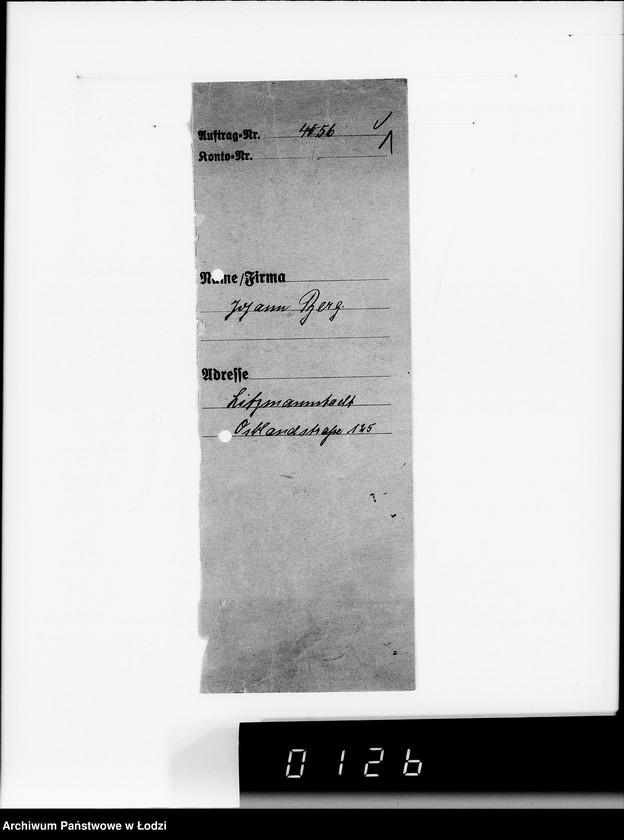 Auftrag-Nr. 4856
Konto-Nr.
Name/Firma
Johann Berg.
Adresse
Litzmannstadt
Ostlandstraße 125
0126
Archiwum Państwowe w Łodzi